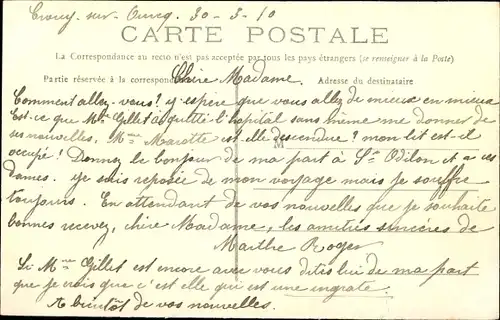 Crouy-sur-Ourcq. 30-3-10
CARTE POSTALE
La Correspondance au recto n'est pas acceptée par tous les pays étrangers (se renseigner à la Poste)
Partie réservée à la correspondance Adresse du destinataire
Chère Madame.
Comment allez-vous? j'espère que vous allez de mieux en mieux
Est-ce que Mme Gillet a quitté l'hôpital sans même me donner de
ses nouvelles, Mme Marotte est-elle descendue? mon lit est-il
occupé! Donnez le bonjour de ma part à Sr Odilon et à ces
Dames. je suis reposée de mon voyage mais je souffre
toujours. En attendant de vos nouvelles que je souhaite
bonnes recevez, chère Madame, les amitiés sincères de
Marthe Roger
Si Mme Gillet est encore avec vous dites lui de ma part
que je crois que c'est elle qui est une ingrate.
A bientôt de vos nouvelles.